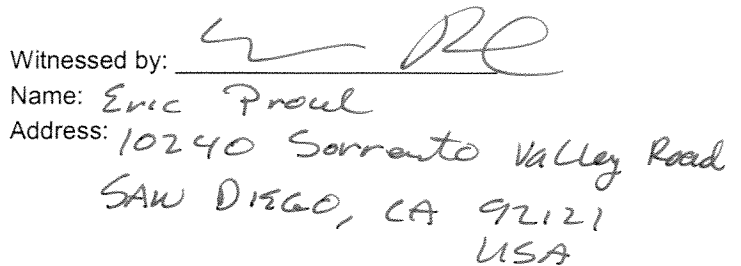 Witnessed by:
Name: Eric Proul
Address: 10240 Sorrento Valley Road
SAN DIEGO, CA 92121
USA